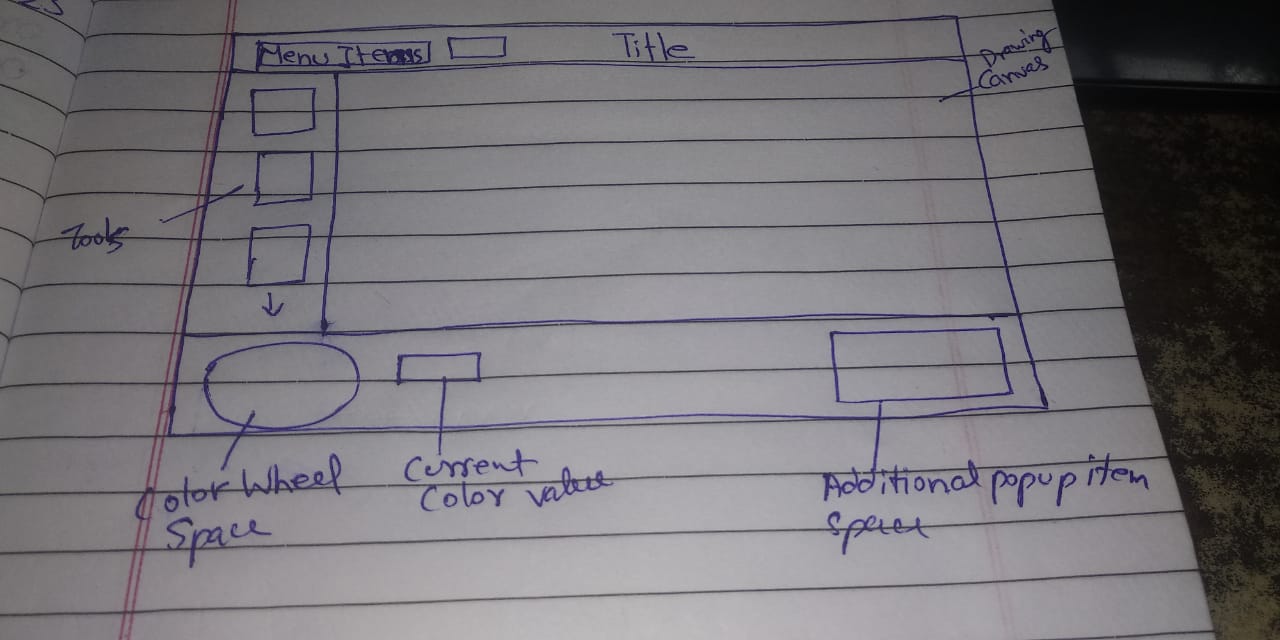 Menu Items
Title
Drawing
Canvas
Tools
Color Wheel
Space
Current
Color value
Additional popup item
space